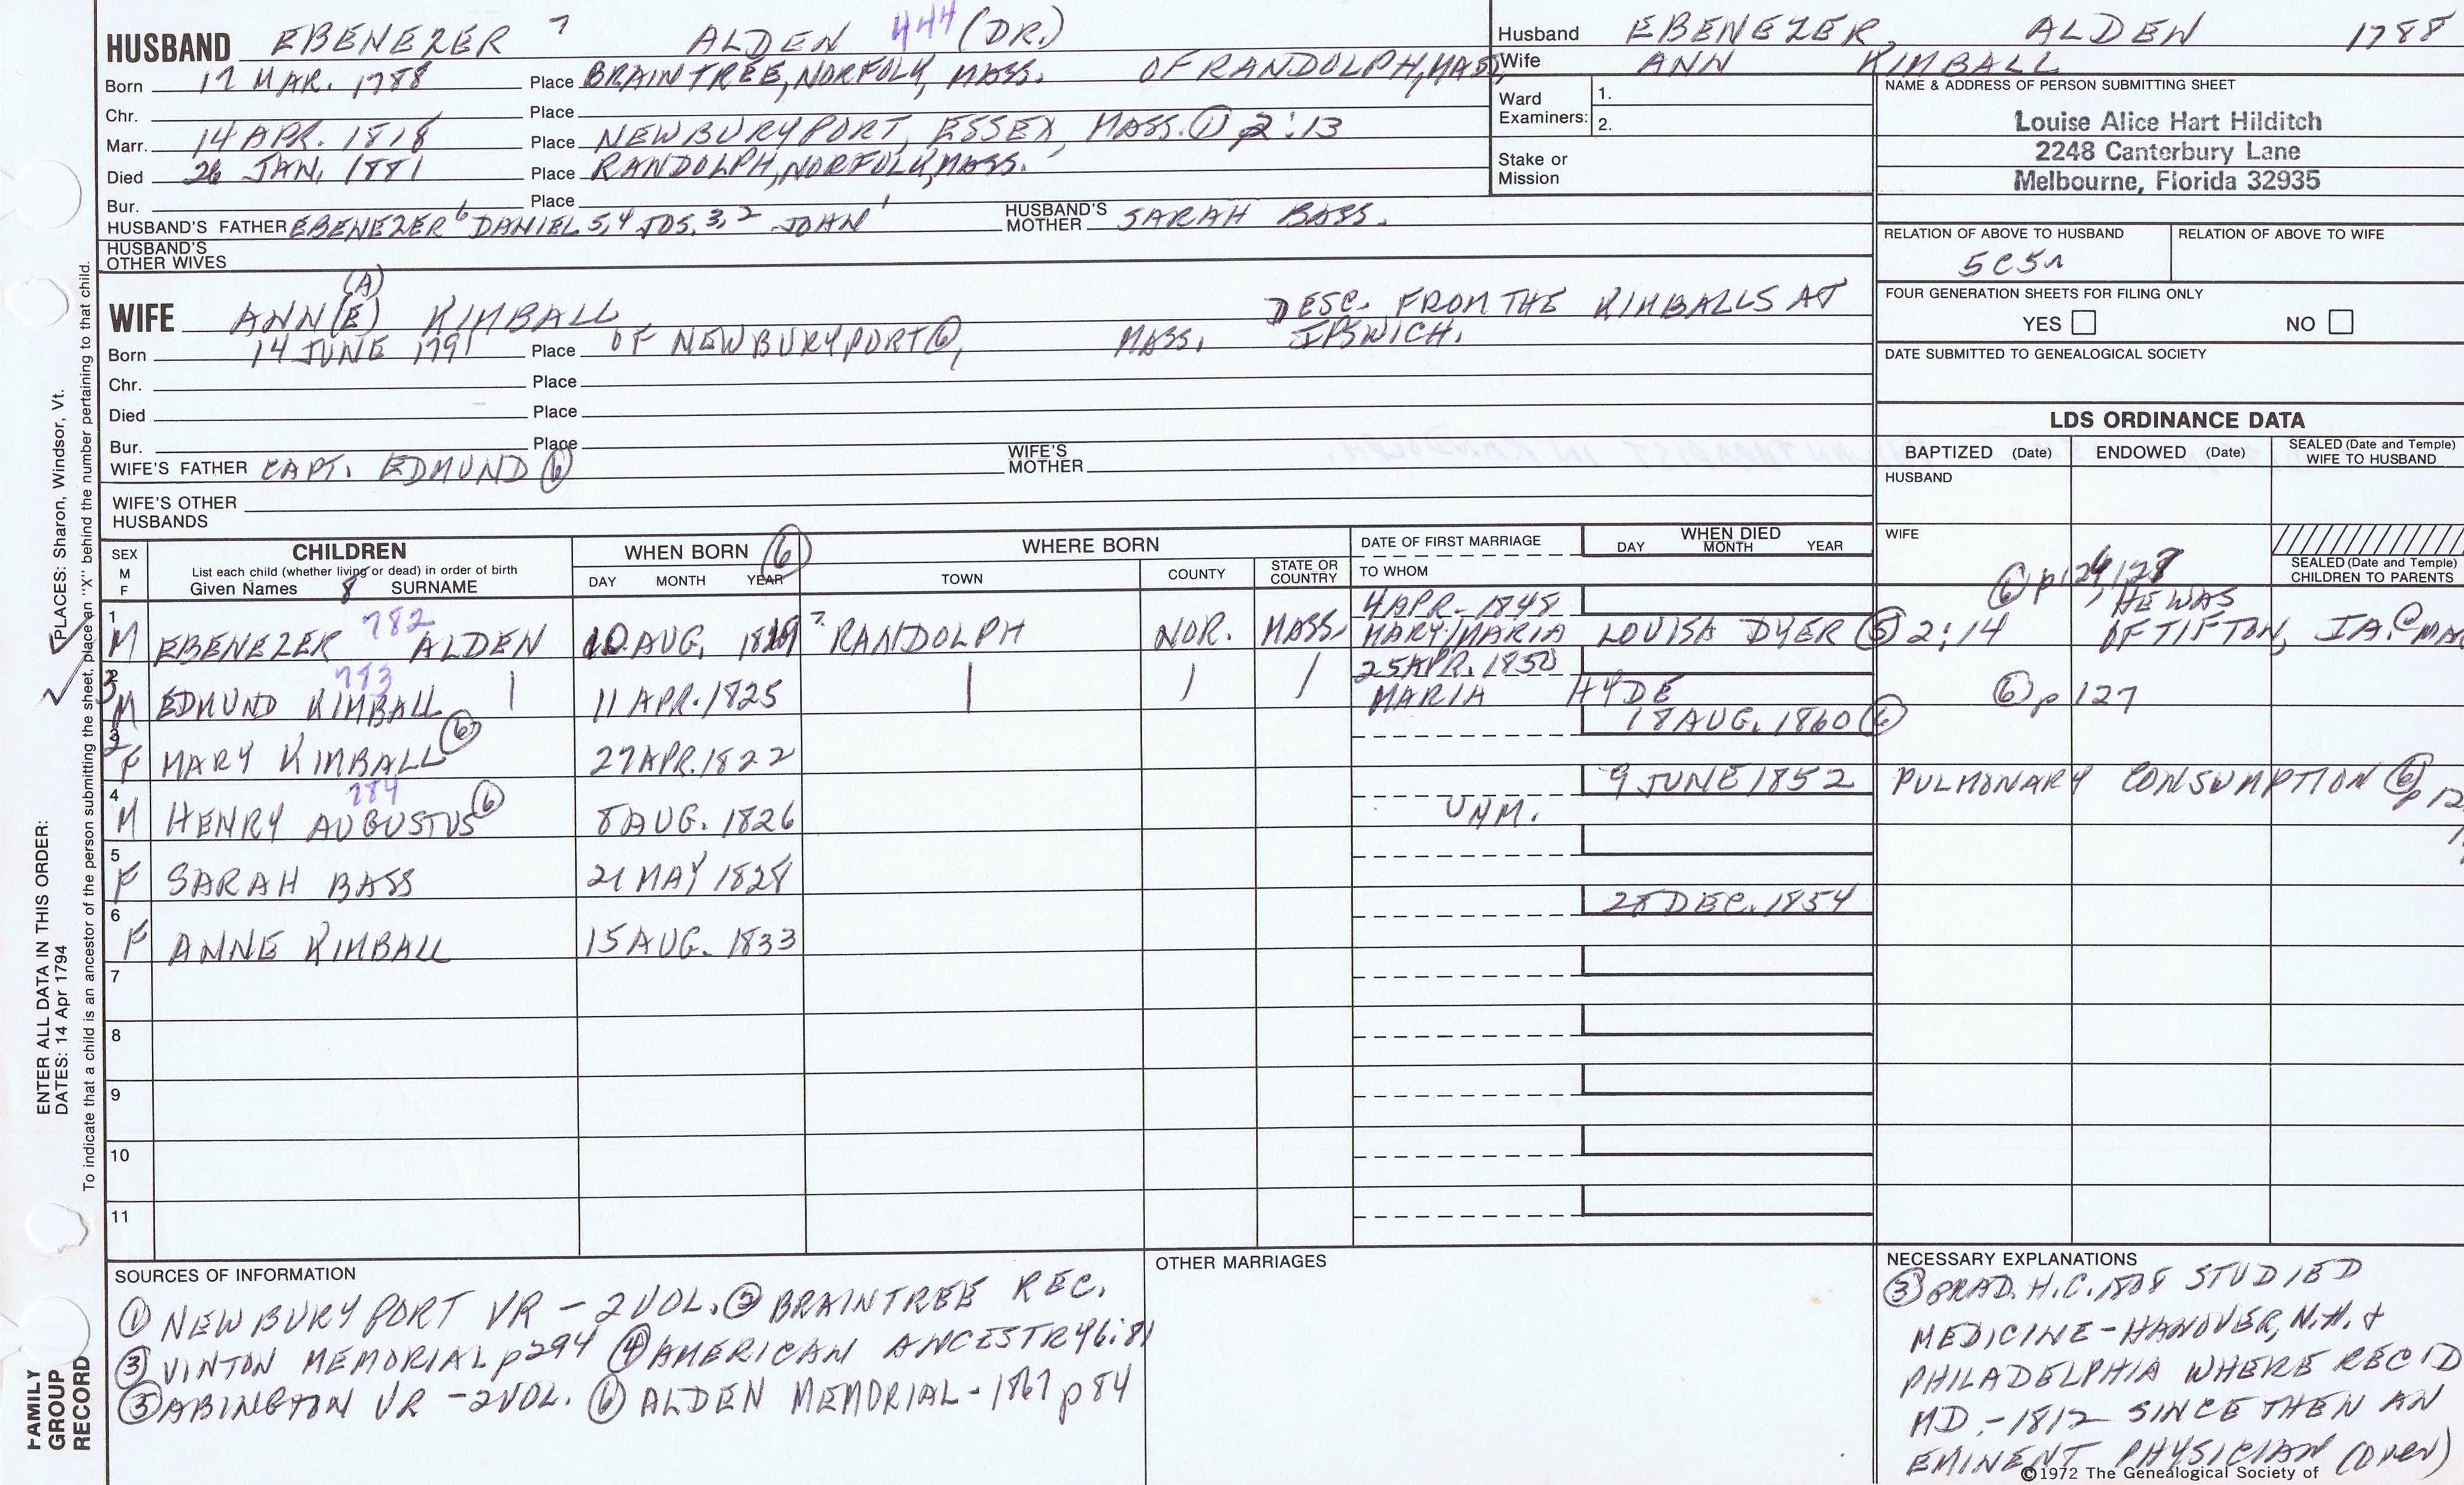 HUSBAND EBENEZER 7 ALDEN 444 (DR.)
Born 17 MAR. 1788 Place BRAINTREE, NORFOLK, MASS. OF RANDOLPH, MASS.
Chr. Place
Marr. 14 APR. 1818 Place NEWBURYPORT, ESSEX, MASS. ① 2:13
Died 26 JAN. 1881 Place RANDOLPH, NORFOLK, MASS.
Bur. Place
HUSBAND'S FATHER EBENEZER 6 DANIEL 5,4 JOS. 3,2 JOHN 1 HUSBAND'S MOTHER SARAH BASS.
HUSBAND'S OTHER WIVES
Husband EBENEZER ALDEN 1788
Wife ANN KIMBALL
Ward Examiners: 1.
2.
Stake or Mission
NAME & ADDRESS OF PERSON SUBMITTING SHEET
Louise Alice Hart Hilditch
2248 Canterbury Lane
Melbourne, Florida 32935
RELATION OF ABOVE TO HUSBAND RELATION OF ABOVE TO WIFE
5C5r
FOUR GENERATION SHEETS FOR FILING ONLY
YES NO
DATE SUBMITTED TO GENEALOGICAL SOCIETY
(A)
WIFE ANN(E) KIMBALL DESC. FROM THE KIMBALLS AT
Born 14 JUNE 1791 Place OF NEWBURYPORT ⑥, MASS. IPSWICH.
Chr. Place
Died Place
Bur. Place
WIFE'S FATHER CAPT. EDMUND ⑥ WIFE'S MOTHER
WIFE'S OTHER HUSBANDS
LDS ORDINANCE DATA
BAPTIZED (Date) ENDOWED (Date) SEALED (Date and Temple) WIFE TO HUSBAND
HUSBAND
WIFE
SEALED (Date and Temple) CHILDREN TO PARENTS
SEX M F CHILDREN WHEN BORN ⑥ WHERE BORN DATE OF FIRST MARRIAGE WHEN DIED
List each child (whether living or dead) in order of birth
Given Names 8 SURNAME DAY MONTH YEAR TOWN COUNTY STATE OR COUNTRY TO WHOM DAY MONTH YEAR
1 782 4 APR. 1848 HE WAS
M EBENEZER ALDEN 10 AUG. 1819 ? RANDOLPH NOR. MASS. MARY/MARIA LOUISA DYER ⑤ 2:14 OF TIFTON, IA.
3 783 25 APR. 1850
M EDMUND KIMBALL | 11 APR. 1825 | | | MARIA HYDE ⑥ p 127
2 18 AUG. 1860 ⑥
F MARY KIMBALL ⑥ 27 APR. 1822
4 784 9 JUNE 1852 PULMONARY CONSUMPTION ⑥
M HENRY AUGUSTUS ⑥ 8 AUG. 1826 UNM.
5
F SARAH BASS 21 MAY 1828
6 28 DEC. 1854
F ANNE KIMBALL 15 AUG. 1833
7
8
9
10
11
SOURCES OF INFORMATION
① NEWBURYPORT VR - 2 VOL. ② BRAINTREE REC.
③ VINTON MEMORIAL p294 ④ AMERICAN ANCESTRY 6:81
⑤ ABINGTON VR - 2 VOL. ⑥ ALDEN MEMORIAL - 1867 p 84
OTHER MARRIAGES
NECESSARY EXPLANATIONS
③ GRAD. H.C. 1808 STUDIED
MEDICINE - HANOVER, N.H. &
PHILADELPHIA WHERE REC'D
MD - 1812 SINCE THEN AN
EMINENT PHYSICIAN (over)
©1972 The Genealogical Society of
ENTER ALL DATA IN THIS ORDER:
DATES: 14 Apr 1794 PLACES: Sharon, Windsor, Vt.
To indicate that a child is an ancestor of the person submitting the sheet, place an "X" behind the number pertaining to that child.
FAMILY
GROUP
RECORD